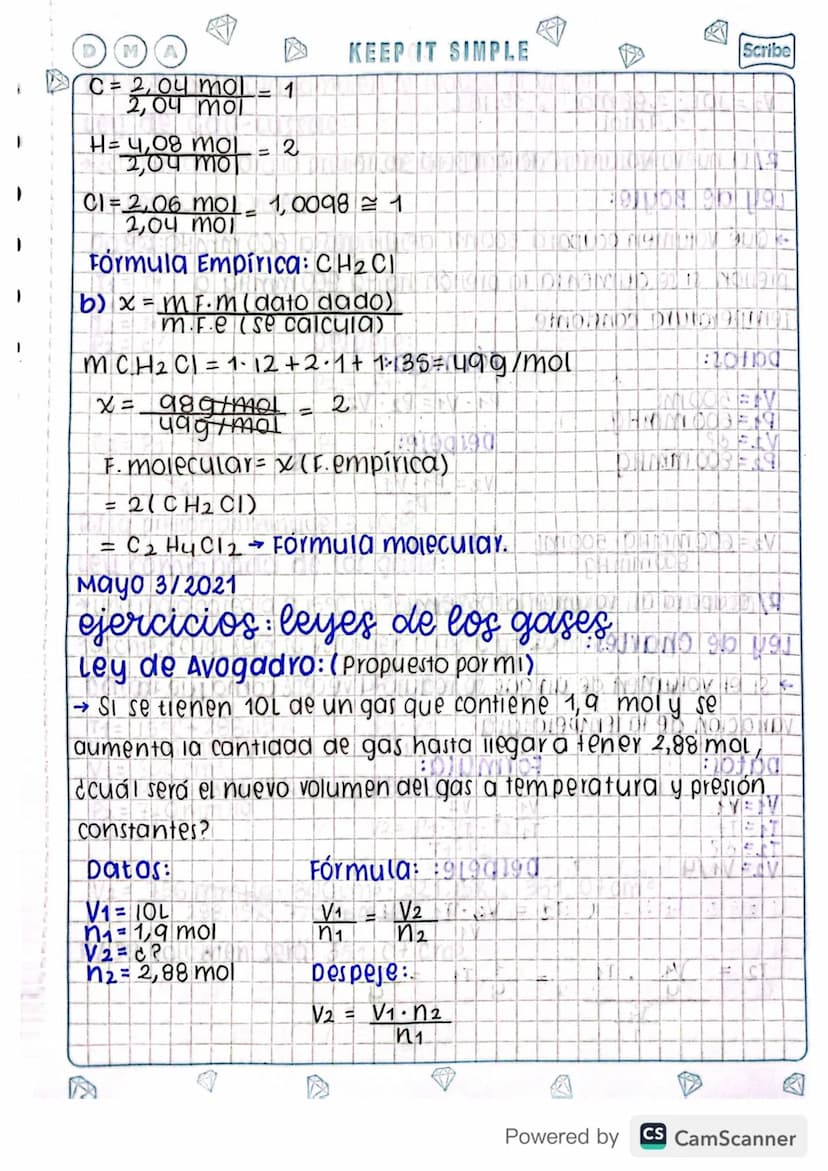 D M A KEEP IT SIMPLE Scribe
C = 2,04 mol / 2,04 mol = 1
H = 4,08 mol / 2,04 mol = 2
Cl = 2,06 mol / 2,04 mol = 1,0098 ≅ 1
Fórmula Empírica: CH2Cl
b) x = m F.m (dato dado) / m.F.e (se calcula)
m CH2Cl = 1·12 + 2·1 + 1·35 = 49 g/mol
x = 98 g/mol / 49 g/mol = 2
F. molecular = x (F. empírica)
= 2(CH2Cl)
= C2H4Cl2 → Fórmula molecular.
Mayo 3/2021
ejercicios: leyes de los gases
Ley de Avogadro: (Propuesto por mi)
→ Si se tienen 10L de un gas que contiene 1,9 mol y se
aumenta la cantidad de gas hasta llegar a tener 2,88 mol,
¿cuál será el nuevo volumen del gas a temperatura y presión
constantes?
Datos: Fórmula:
V1 = 10L V1 / n1 = V2 / n2
n1 = 1,9 mol
V2 = ¿?
n2 = 2,88 mol Despeje:
V2 = V1 · n2 / n1
Powered by CS CamScanner